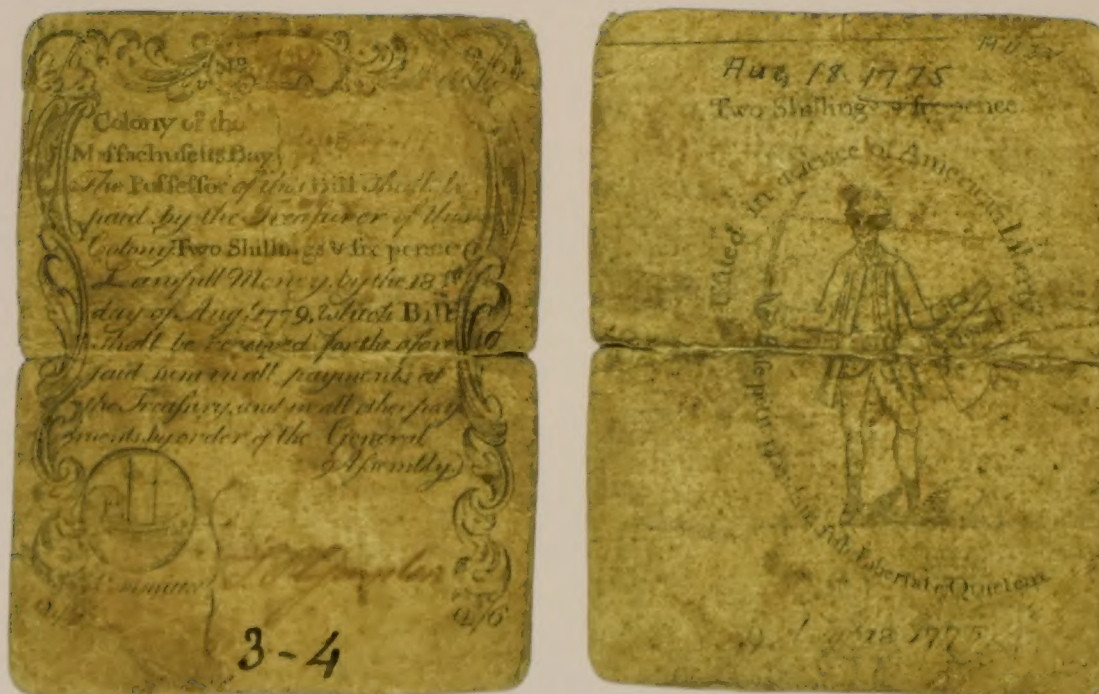 No
Colony of the
Massachusetts Bay
The Possessor of this Bill shall be
paid by the Treasurer of this
Colony Two Shillings & six pence
Lawfull Money by the 18th
day of Aug. 1779, which Bill
Shall be received for the afore
said sum in all payments at
the Treasury and in all other pay
ments by order of the General
Assembly
Committee
2/6
3-4
Aug 18 1775
Two Shillings & six pence
Issued in defence of American Liberty
Ense petit placidam sub Libertate Quietem
Aug 18 1775